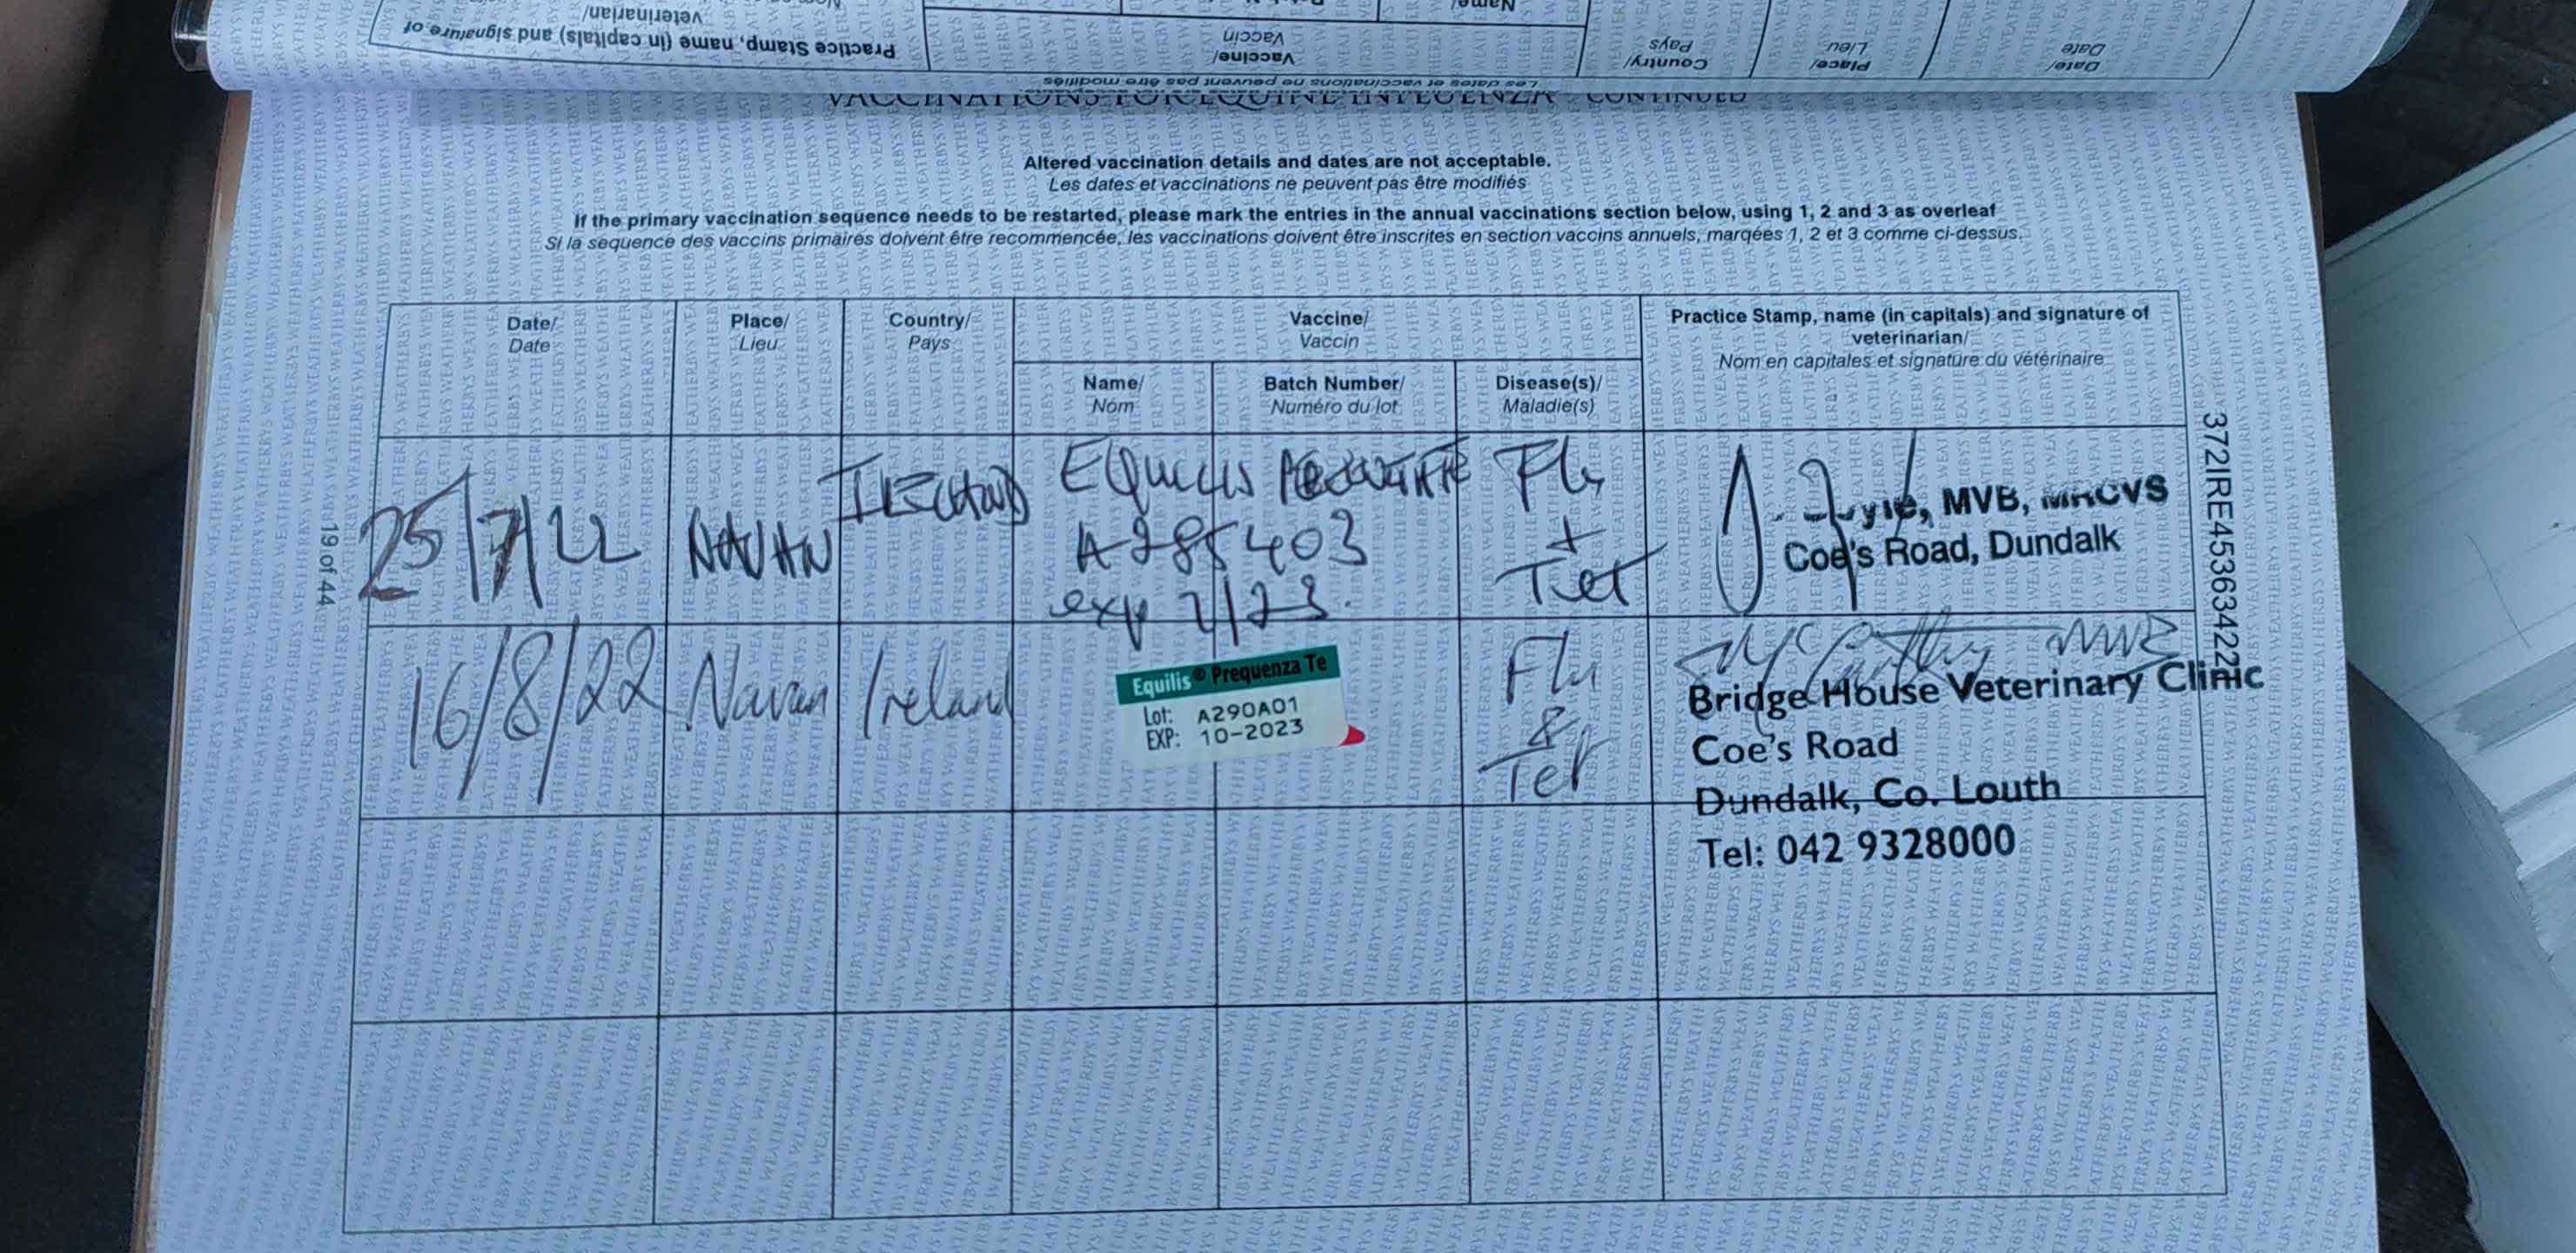 Practice Stamp, name (in capitals) and signature of
veterinarian/
Vaccine/
Vaccin
Name/
Country/
Pays
Place/
Lieu
Date/
Date
Les dates et vaccinations ne peuvent pas être modifiés
VACCINATIONS FOR EQUINE INFLUENZA - CONTINUED
Altered vaccination details and dates are not acceptable.
Les dates et vaccinations ne peuvent pas être modifiés
If the primary vaccination sequence needs to be restarted, please mark the entries in the annual vaccinations section below, using 1, 2 and 3 as overleaf
Si la sequence des vaccins primaires doivent être recommencée, les vaccinations doivent être inscrites en section vaccins annuels, marqées 1, 2 et 3 comme ci-dessus.
Date/
Date
Place/
Lieu
Country/
Pays
Vaccine/
Vaccin
Name/
Nom
Batch Number/
Numéro du lot
Disease(s)/
Maladie(s)
Practice Stamp, name (in capitals) and signature of
veterinarian/
Nom en capitales et signature du vétérinaire
25/7/22
NAVAN
IRELAND
Equilis
A285403
exp 7/23.
Flu
+
Tet
MVB, MRCVS
Coe's Road, Dundalk
16/8/22
Navan
Ireland
Equilis® Prequenza Te
Lot: A290A01
EXP: 10-2023
Flu
&
Tet
McCarthy MVB
Bridge House Veterinary Clinic
Coe's Road
Dundalk, Co. Louth
Tel: 042 9328000
19 of 44
372IRE453634221
WEATHERBYS